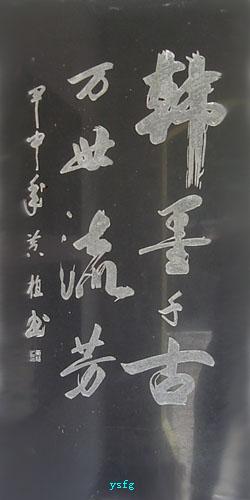 韩墨千古
万世流芳
甲申年黄植书
ysfg